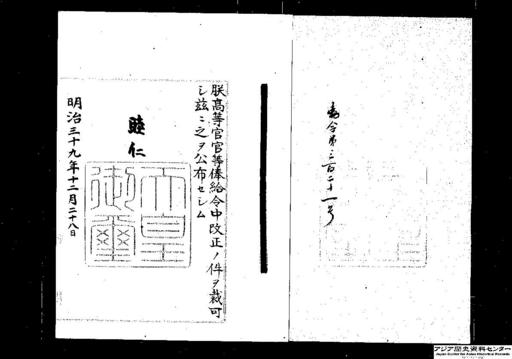 勅令第三百二十一号
朕高等官官等俸給令中改正ノ件ヲ裁可
シ茲ニ之ヲ公布セシム
睦仁
天皇御璽
明治三十九年十二月二十八日
アジア歴史資料センター
Japan Center for Asian Historical Records